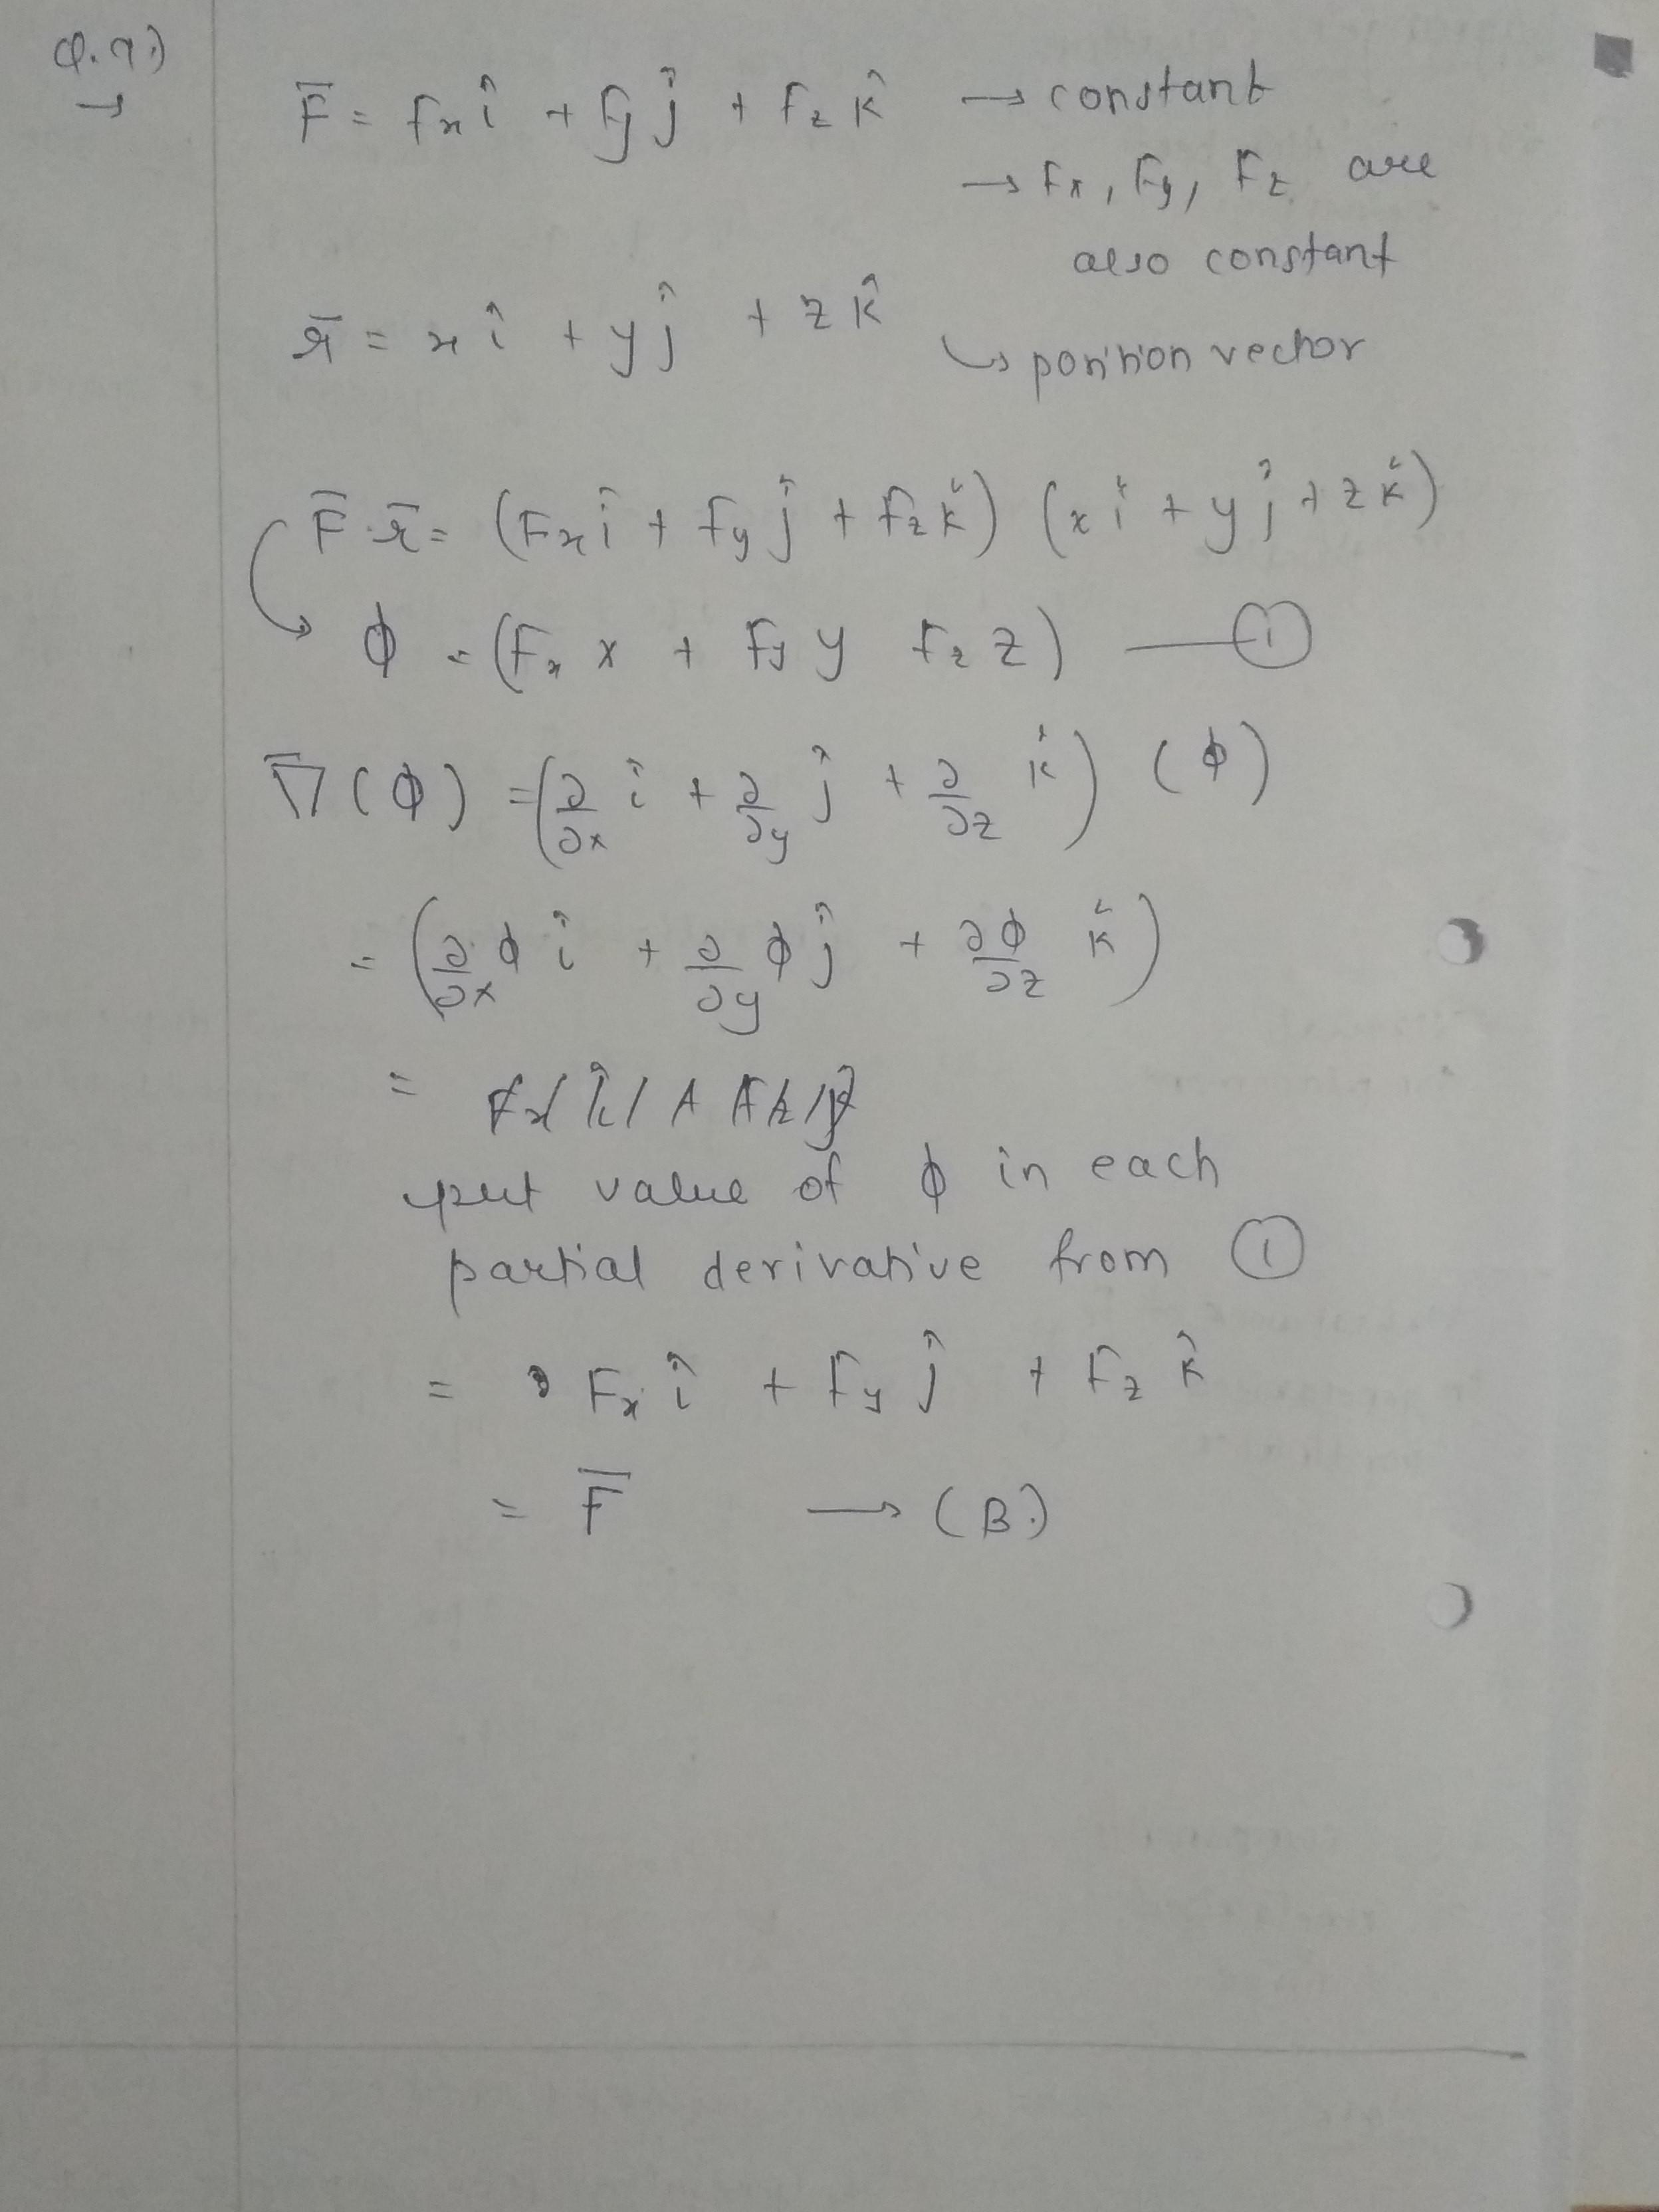 Q.9.)
→
F̅ = Fx î + Fy ĵ + Fz k̂ → constant
→ Fx, Fy, Fz are
also constant
r̅ = x î + y ĵ + z k̂
↳ position vector
F̅·r̅ = (Fx î + Fy ĵ + Fz k̂) (x î + y ĵ + z k̂)
ϕ = (Fx x + Fy y Fz z) — ①
∇̅(ϕ) = (∂/∂x î + ∂/∂y ĵ + ∂/∂z k̂) (ϕ)
= (∂/∂x ϕ î + ∂/∂y ϕ ĵ + ∂ϕ/∂z k̂)
=
put value of ϕ in each
partial derivative from ①
= Fx î + Fy ĵ + Fz k̂
= F̅ → (B.)